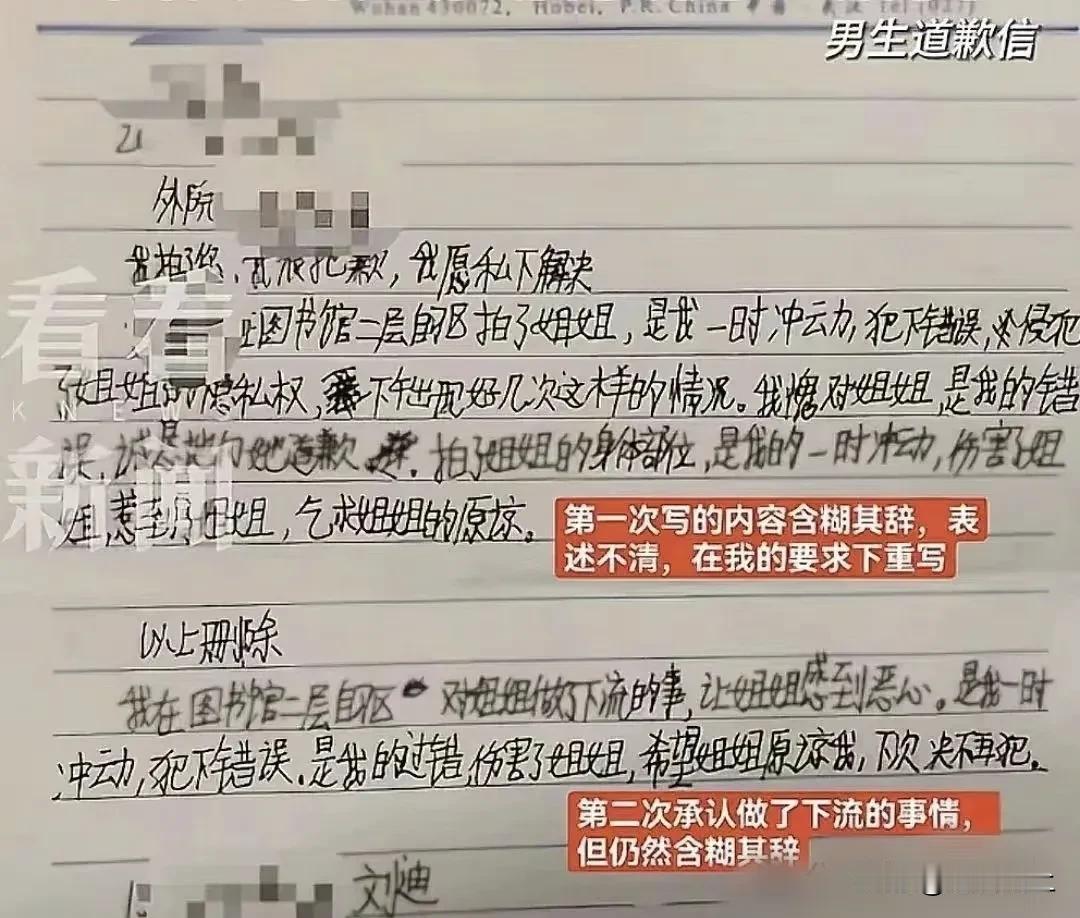 Wuhan 430072, Hubei, P.R. China 中国·武汉 Tel (027)
男生道歉信
外院
我拍了您,我很抱歉,我愿私下解决
在图书馆二层自习区拍了姐姐,是我一时冲云力,犯下错误,侵犯
了姐姐的隐私权,下午出现好几次这样的情况。我愧对姐姐,是我的错
误,诚恳地向她道歉,拍了姐姐的身体部位,是我的一时冲动,伤害了姐
姐,惹到了姐姐,乞求姐姐的原谅。
第一次写的内容含糊其辞,表
述不清,在我的要求下重写
以上删除
我在图书馆二层自区对姐姐做了下流的事,让姐姐感到恶心。是我一时
冲动,犯下错误。是我的过错,伤害了姐姐,希望姐姐原谅我,下次决不再犯。
第二次承认做了下流的事情,
但仍然含糊其辞
看看
KNEWS
新闻